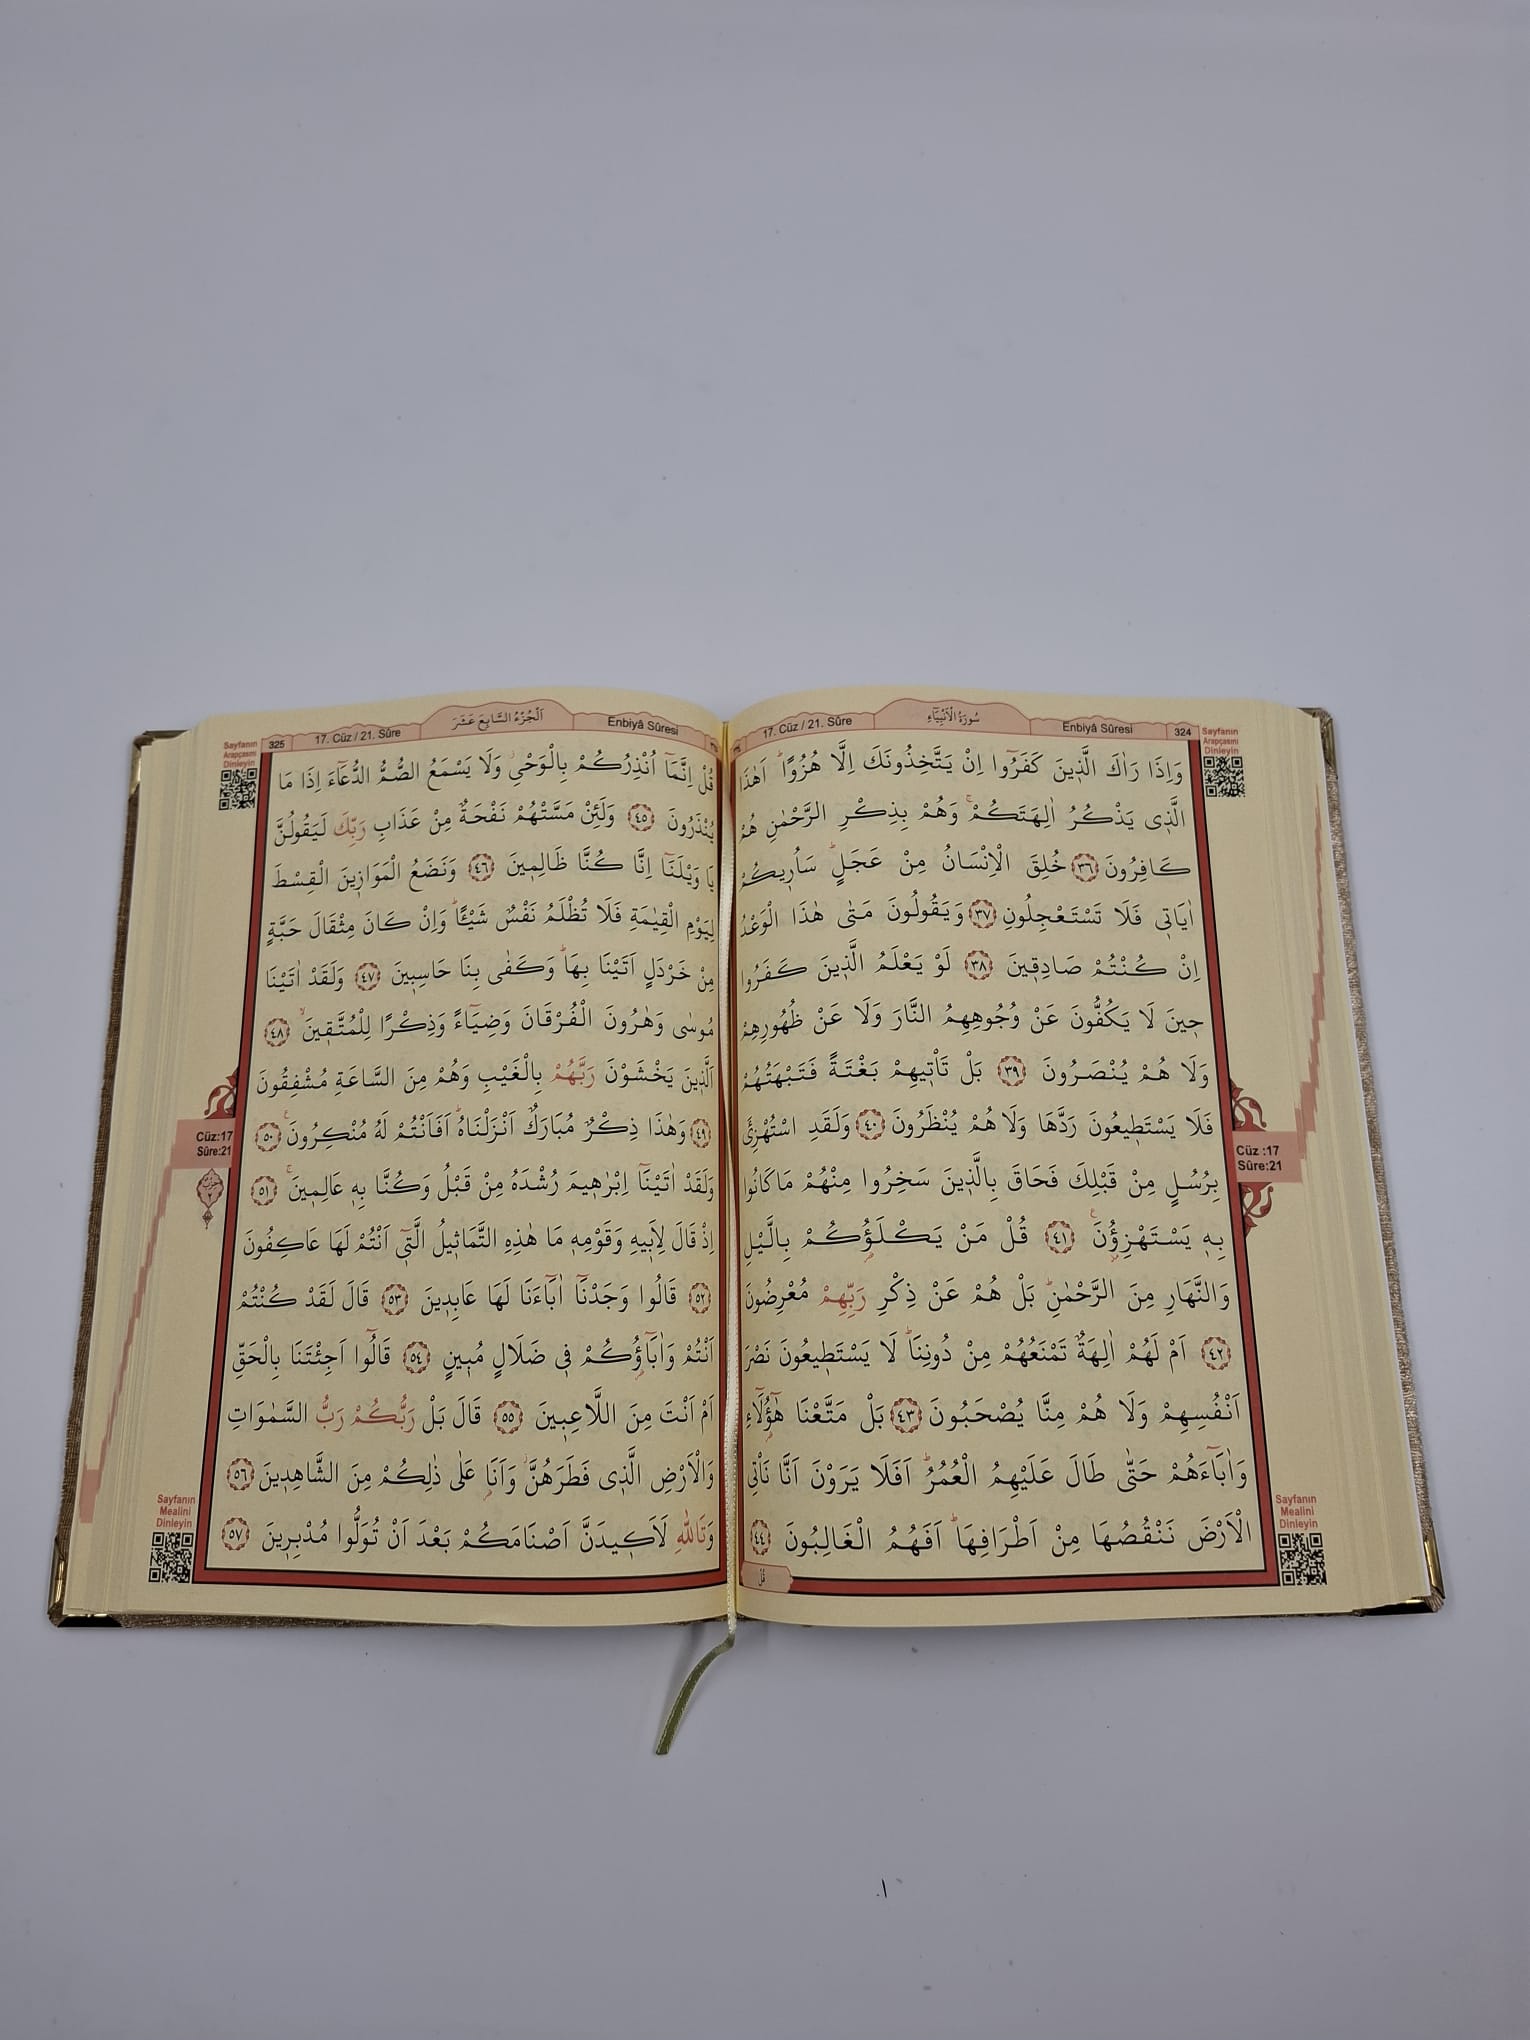 Enbiyâ Sûresi 324
سُورَةُ الْاَنْبِيَٓاءِ
17. Cüz / 21. Sûre
Sayfanın
Arapçasını
Dinleyin
وَاِذَا رَاٰكَ الَّذ۪ينَ كَفَرُٓوا اِنْ يَتَّخِذُونَكَ اِلَّا هُزُوًاۜ اَهٰذَا
الَّذ۪ي يَذْكُرُ اٰلِهَتَكُمْۚ وَهُمْ بِذِكْرِ الرَّحْمٰنِ هُمْ
كَافِرُونَ ﴿٣٦﴾ خُلِقَ الْاِنْسَانُ مِنْ عَجَلٍۜ سَاُر۪يكُمْ
اٰيَات۪ي فَلَا تَسْتَعْجِلُونِ ﴿٣٧﴾ وَيَقُولُونَ مَتٰى هٰذَا الْوَعْدُ
اِنْ كُنْتُمْ صَادِق۪ينَ ﴿٣٨﴾ لَوْ يَعْلَمُ الَّذ۪ينَ كَفَرُوا
ح۪ينَ لَا يَكُفُّونَ عَنْ وُجُوهِهِمُ النَّارَ وَلَا عَنْ ظُهُورِهِمْ
وَلَا هُمْ يُنْصَرُونَ ﴿٣٩﴾ بَلْ تَأْت۪يهِمْ بَغْتَةً فَتَبْهَتُهُمْ
فَلَا يَسْتَط۪يعُونَ رَدَّهَا وَلَا هُمْ يُنْظَرُونَ ﴿٤٠﴾ وَلَقَدِ اسْتُهْزِئَ
بِرُسُلٍ مِنْ قَبْلِكَ فَحَاقَ بِالَّذ۪ينَ سَخِرُوا مِنْهُمْ مَا كَانُوا
بِه۪ يَسْتَهْزِؤُ۫نَ۟ ﴿٤١﴾ قُلْ مَنْ يَكْلَؤُ۬كُمْ بِالَّيْلِ
وَالنَّهَارِ مِنَ الرَّحْمٰنِۜ بَلْ هُمْ عَنْ ذِكْرِ رَبِّهِمْ مُعْرِضُونَ
﴿٤٢﴾ اَمْ لَهُمْ اٰلِهَةٌ تَمْنَعُهُمْ مِنْ دُونِنَاۜ لَا يَسْتَط۪يعُونَ نَصْرَ
اَنْفُسِهِمْ وَلَا هُمْ مِنَّا يُصْحَبُونَ ﴿٤٣﴾ بَلْ مَتَّعْنَا هٰٓؤُ۬لَٓاءِ
وَاٰبَٓاءَهُمْ حَتّٰى طَالَ عَلَيْهِمُ الْعُمُرُۜ اَفَلَا يَرَوْنَ اَنَّا نَأْتِي
الْاَرْضَ نَنْقُصُهَا مِنْ اَطْرَافِهَاۜ اَفَهُمُ الْغَالِبُونَ ﴿٤٤﴾
قُلْ
Cüz :17
Sûre:21
Sayfanın
Mealini
Dinleyin
Enbiyâ Sûresi
اَلْجُزْءُ السَّابِعَ عَشَرَ
17. Cüz / 21. Sûre 325
Sayfanın
Arapçasını
Dinleyin
قُلْ اِنَّمَٓا اُنْذِرُكُمْ بِالْوَحْيِۘ وَلَا يَسْمَعُ الصُّمُّ الدُّعَٓاءَ اِذَا مَا
يُنْذَرُونَ ﴿٤٥﴾ وَلَئِنْ مَسَّتْهُمْ نَفْحَةٌ مِنْ عَذَابِ رَبِّكَ لَيَقُولُنَّ
يَا وَيْلَنَٓا اِنَّا كُنَّا ظَالِم۪ينَ ﴿٤٦﴾ وَنَضَعُ الْمَوَاز۪ينَ الْقِسْطَ
لِيَوْمِ الْقِيٰمَةِ فَلَا تُظْلَمُ نَفْسٌ شَيْـًٔاۜ وَاِنْ كَانَ مِثْقَالَ حَبَّةٍ
مِنْ خَرْدَلٍ اَتَيْنَا بِهَاۜ وَكَفٰى بِنَا حَاسِب۪ينَ ﴿٤٧﴾ وَلَقَدْ اٰتَيْنَا
مُوسٰى وَهٰرُونَ الْفُرْقَانَ وَضِيَٓاءً وَذِكْرًا لِلْمُتَّق۪ينَۙ ﴿٤٨﴾
اَلَّذ۪ينَ يَخْشَوْنَ رَبَّهُمْ بِالْغَيْبِ وَهُمْ مِنَ السَّاعَةِ مُشْفِقُونَ
﴿٤٩﴾ وَهٰذَا ذِكْرٌ مُبَارَكٌ اَنْزَلْنَاهُۜ اَفَاَنْتُمْ لَهُ مُنْكِرُونَ۟ ﴿٥٠﴾
وَلَقَدْ اٰتَيْنَٓا اِبْرٰه۪يمَ رُشْدَهُ مِنْ قَبْلُ وَكُنَّا بِه۪ عَالِم۪ينَۚ ﴿٥١﴾
اِذْ قَالَ لِاَب۪يهِ وَقَوْمِه۪ مَا هٰذِهِ التَّمَاث۪يلُ الَّت۪ٓي اَنْتُمْ لَهَا عَاكِفُونَ
﴿٥٢﴾ قَالُوا وَجَدْنَٓا اٰبَٓاءَنَا لَهَا عَابِد۪ينَ ﴿٥٣﴾ قَالَ لَقَدْ كُنْتُمْ
اَنْتُمْ وَاٰبَٓاؤُ۬كُمْ ف۪ي ضَلَالٍ مُب۪ينٍ ﴿٥٤﴾ قَالُٓوا اَجِئْتَنَا بِالْحَقِّ
اَمْ اَنْتَ مِنَ اللَّاعِب۪ينَ ﴿٥٥﴾ قَالَ بَلْ رَبُّكُمْ رَبُّ السَّمٰوَاتِ
وَالْاَرْضِ الَّذ۪ي فَطَرَهُنَّۘ وَاَنَا۬ عَلٰى ذٰلِكُمْ مِنَ الشَّاهِد۪ينَ ﴿٥٦﴾
وَتَاللّٰهِ لَاَك۪يدَنَّ اَصْنَامَكُمْ بَعْدَ اَنْ تُوَلُّوا مُدْبِر۪ينَ ﴿٥٧﴾
Cüz:17
Sûre:21
Sayfanın
Mealini
Dinleyin